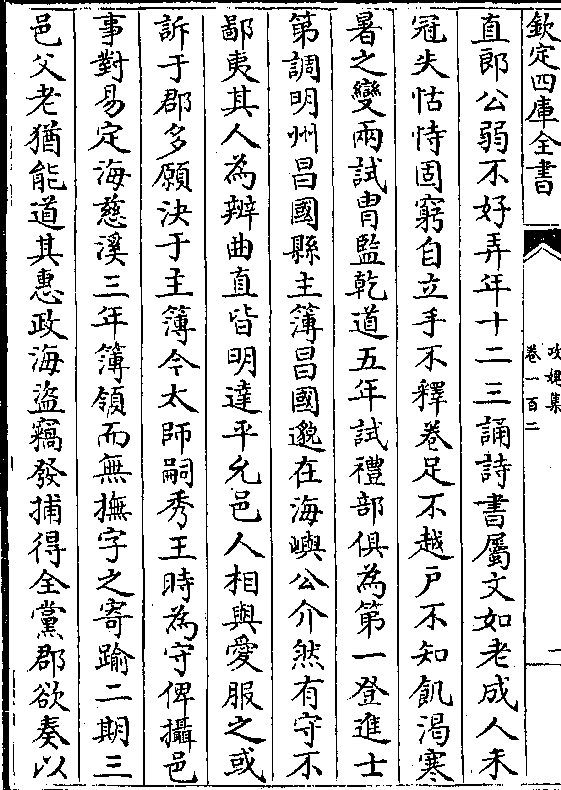 欽定四庫全書
攻媿集
卷一百二
一
直郎公弱不好弄年十二三誦詩書屬文如老成人未
冠失怙恃固窮自立手不釋卷足不越戶不知飢渴寒
暑之變兩試胄監乾道五年試禮部俱為第一登進士
第調明州昌國縣主簿昌國邈在海嶼公介然有守不
鄙夷其人為辨曲直皆明達平允邑人相與愛服之或
訴于郡多願決于主簿今太師嗣秀王時為守俾攝邑
事對易定海慈溪三年簿領而無撫字之寄踰二期三
邑父老猶能道其惠政海盜竊發捕得全黨郡欲奏以